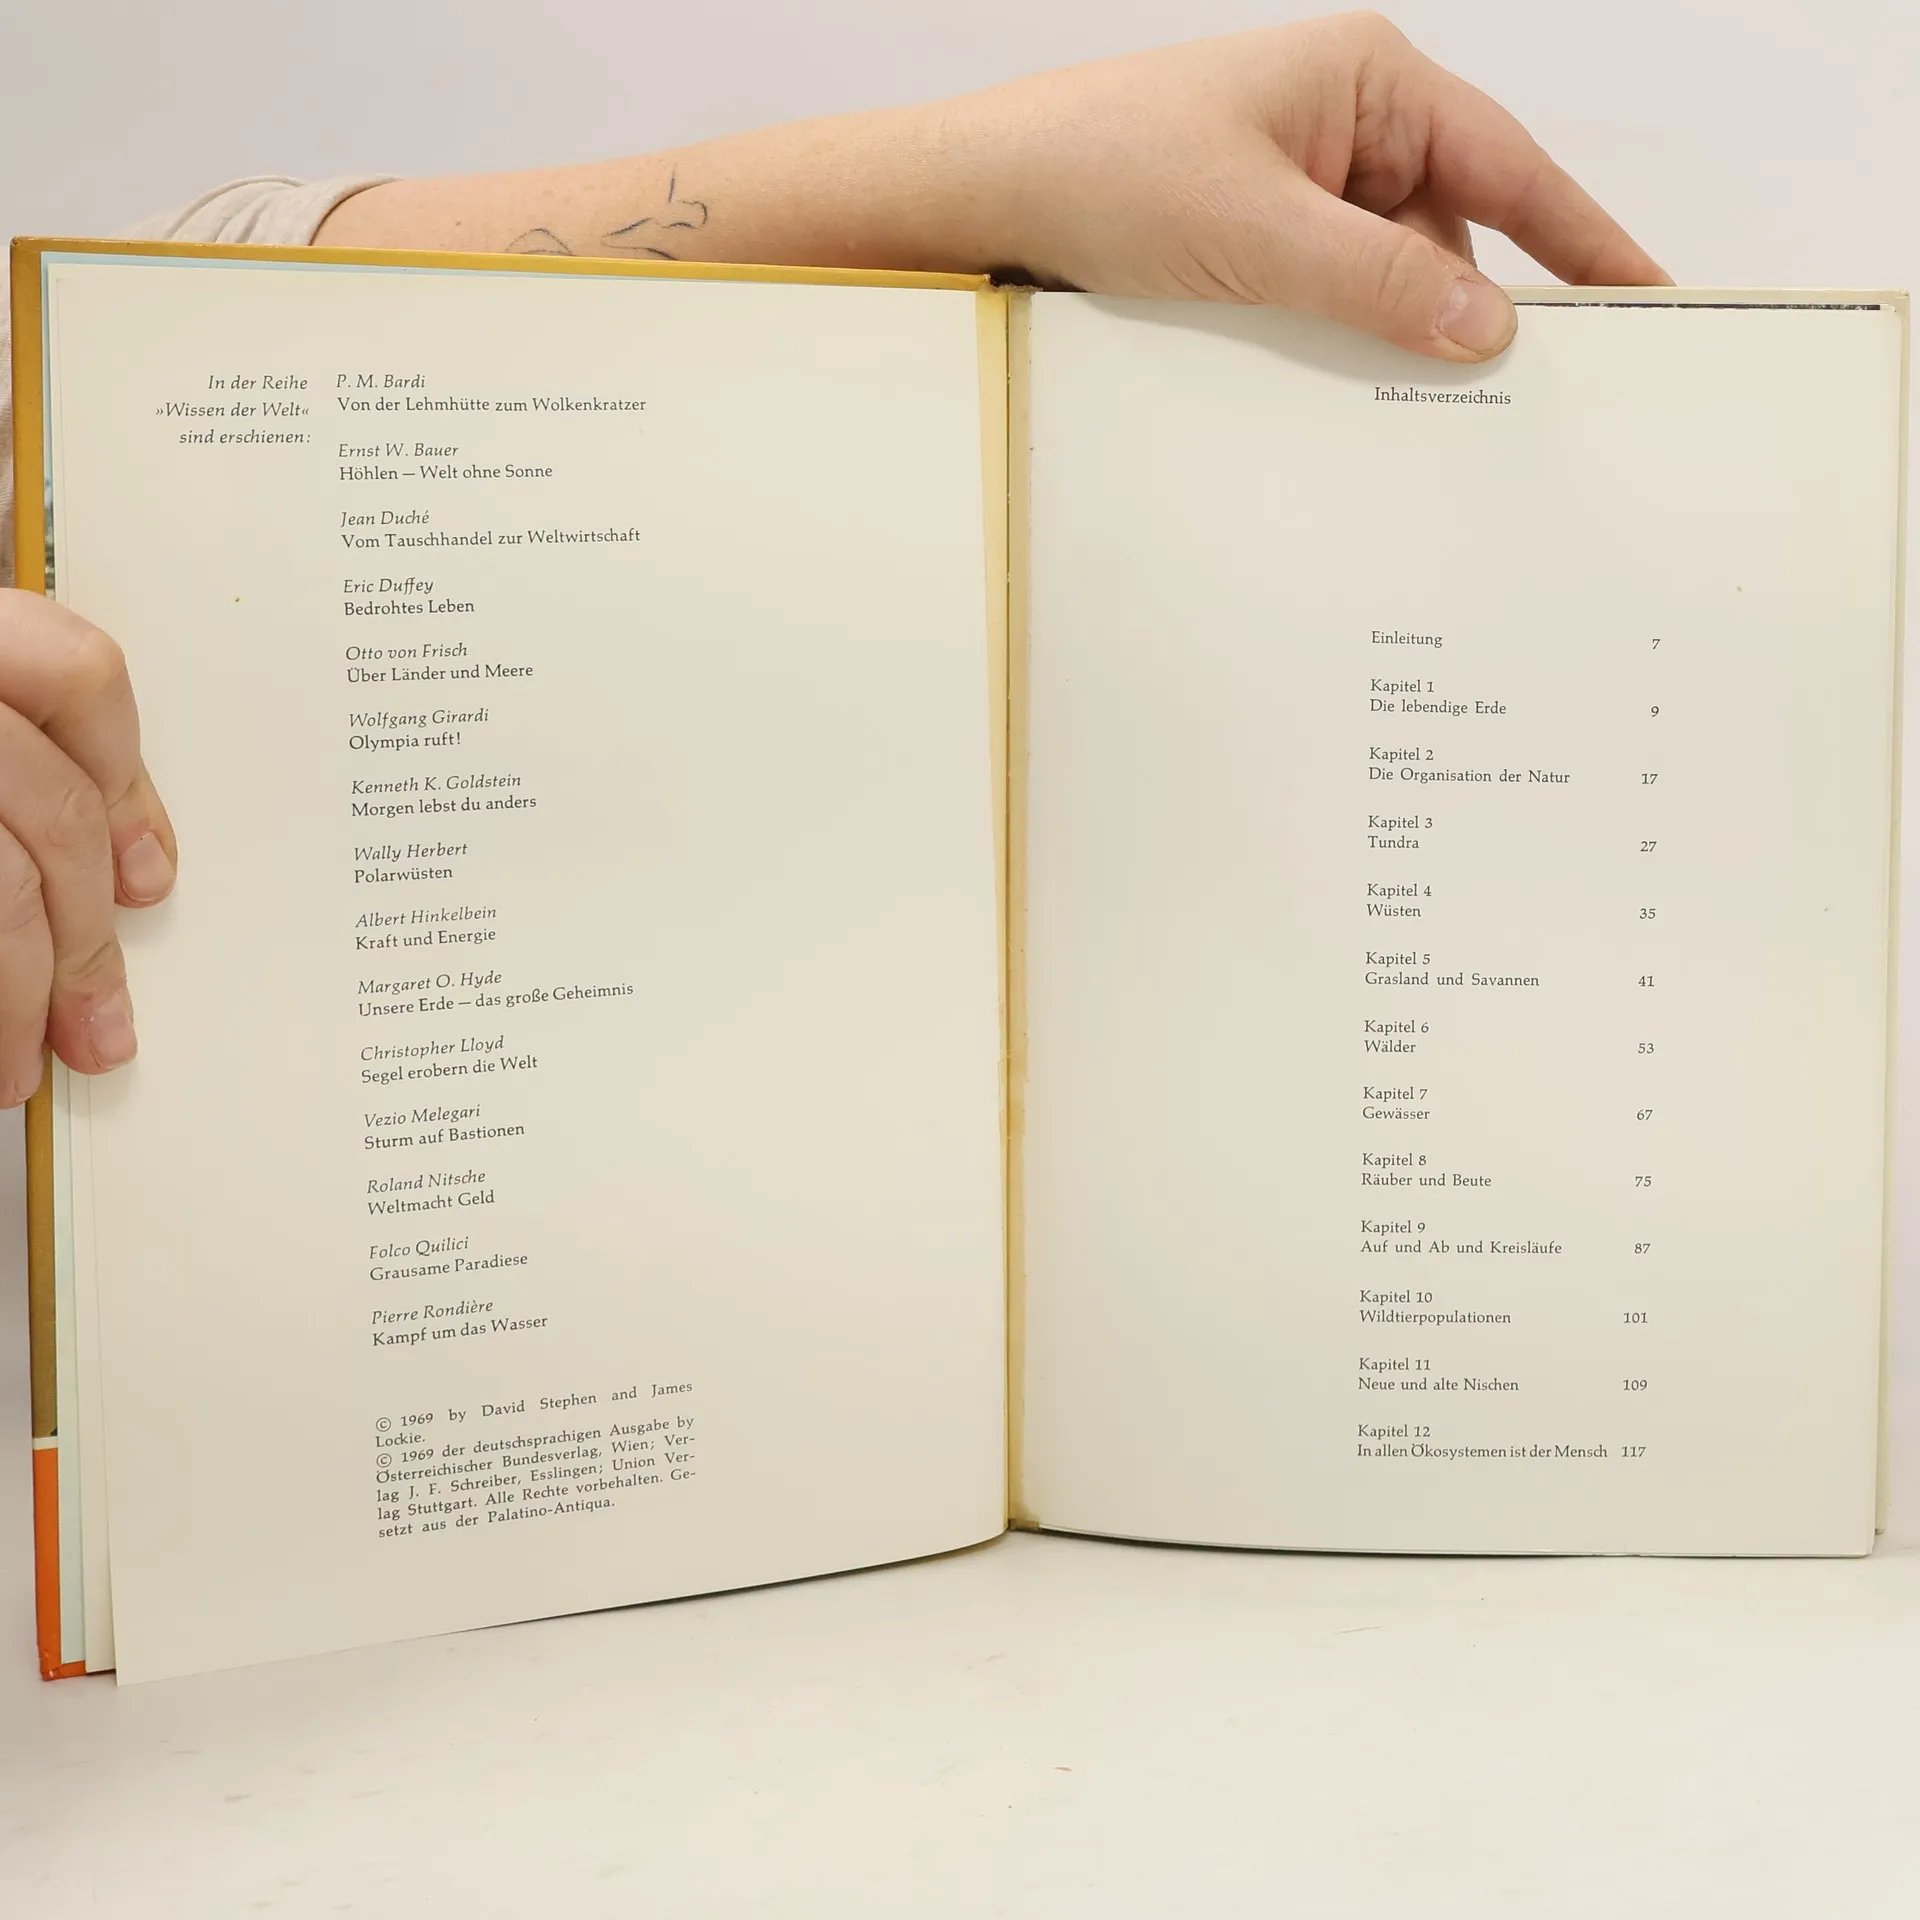 In der Reihe
»Wissen der Welt«
sind erschienen:
P. M. Bardi
Von der Lehmhütte zum Wolkenkratzer
Ernst W. Bauer
Höhlen — Welt ohne Sonne
Jean Duché
Vom Tauschhandel zur Weltwirtschaft
Eric Duffey
Bedrohtes Leben
Otto von Frisch
Über Länder und Meere
Wolfgang Girardi
Olympia ruft!
Kenneth K. Goldstein
Morgen lebst du anders
Wally Herbert
Polarwüsten
Albert Hinkelbein
Kraft und Energie
Margaret O. Hyde
Unsere Erde — das große Geheimnis
Christopher Lloyd
Segel erobern die Welt
Vezio Melegari
Sturm auf Bastionen
Roland Nitsche
Weltmacht Geld
Folco Quilici
Grausame Paradiese
Pierre Rondière
Kampf um das Wasser
© 1969 by David Stephen and James
Lockie.
© 1969 der deutschsprachigen Ausgabe by
Österreichischer Bundesverlag, Wien; Ver-
lag J. F. Schreiber, Esslingen; Union Ver-
lag Stuttgart. Alle Rechte vorbehalten. Ge-
setzt aus der Palatino-Antiqua.
Inhaltsverzeichnis
Einleitung 7
Kapitel 1
Die lebendige Erde 9
Kapitel 2
Die Organisation der Natur 17
Kapitel 3
Tundra 27
Kapitel 4
Wüsten 35
Kapitel 5
Grasland und Savannen 41
Kapitel 6
Wälder 53
Kapitel 7
Gewässer 67
Kapitel 8
Räuber und Beute 75
Kapitel 9
Auf und Ab und Kreisläufe 87
Kapitel 10
Wildtierpopulationen 101
Kapitel 11
Neue und alte Nischen 109
Kapitel 12
In allen Ökosystemen ist der Mensch 117